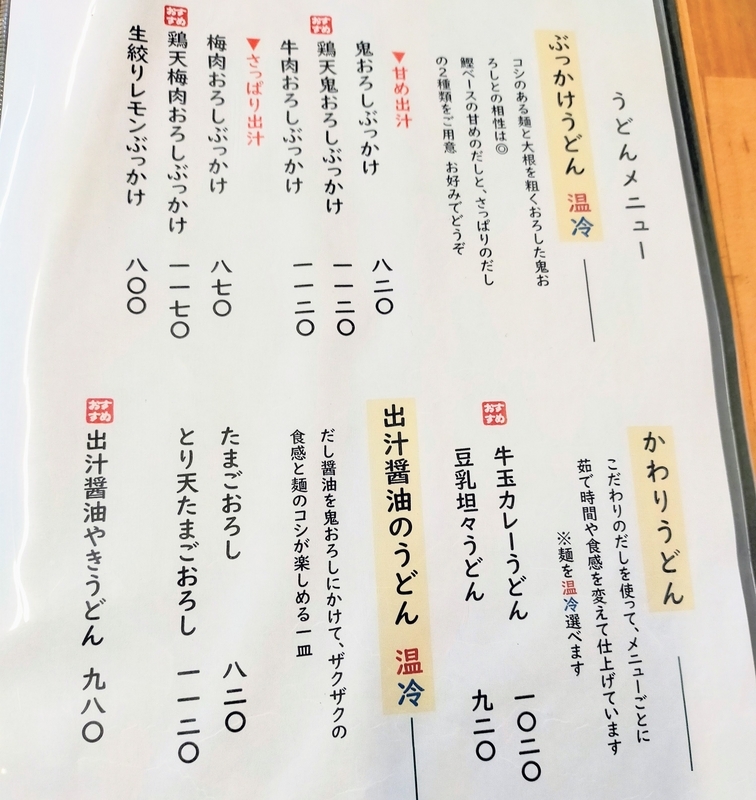 うどんメニュー
ぶっかけうどん 温冷
コシのある麺と大根を粗くおろした鬼お
ろしとの相性は◎
鰹ベースの甘めのだしと、さっぱりのだし
の2種類をご用意 お好みでどうぞ
▼甘め出汁
鬼おろしぶっかけ 八二〇
おすすめ
鶏天鬼おろしぶっかけ 一一二〇
牛肉おろしぶっかけ 一一二〇
▼さっぱり出汁
梅肉おろしぶっかけ 八七〇
おすすめ
鶏天梅肉おろしぶっかけ 一一七〇
生絞りレモンぶっかけ 八〇〇
かわりうどん
こだわりのだしを使って、メニューごとに
茹で時間や食感を変えて仕上げています
※麺を温冷選べます
おすすめ
牛玉カレーうどん 一〇二〇
豆乳坦々うどん 九二〇
出汁醤油のうどん 温冷
だし醤油を鬼おろしにかけて、ザクザクの
食感と麺のコシが楽しめる一皿
たまごおろし 八二〇
とり天たまごおろし 一一二〇
おすすめ
出汁醤油やきうどん 九八〇